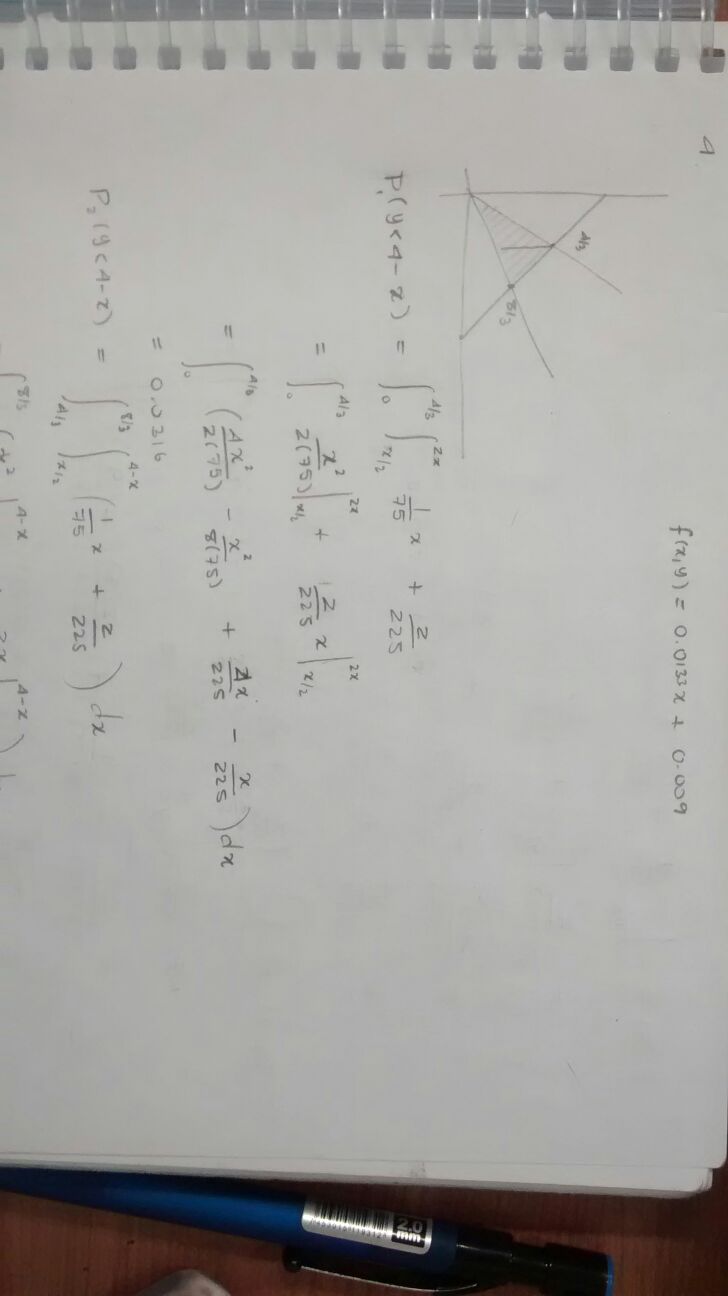 4
f(x,y) = 0.0133x + 0.009
4/3
8/3
P₁(y<4-x) = ∫₀^{4/3} ∫_{x/2}^{2x} 1/75 x + 2/225
= ∫₀^{4/3} x²/2(75) |_{x/2}^{2x} + 2/225 x |_{x/2}^{2x}
= ∫₀^{4/3} (4x²/2(75) - x²/8(75) + 4x/225 - x/225) dx
= 0.0316
P₂(y<4-x) = ∫_{4/3}^{8/3} ∫_{x/2}^{4-x} (1/75 x + 2/225) dx
2.0
mm